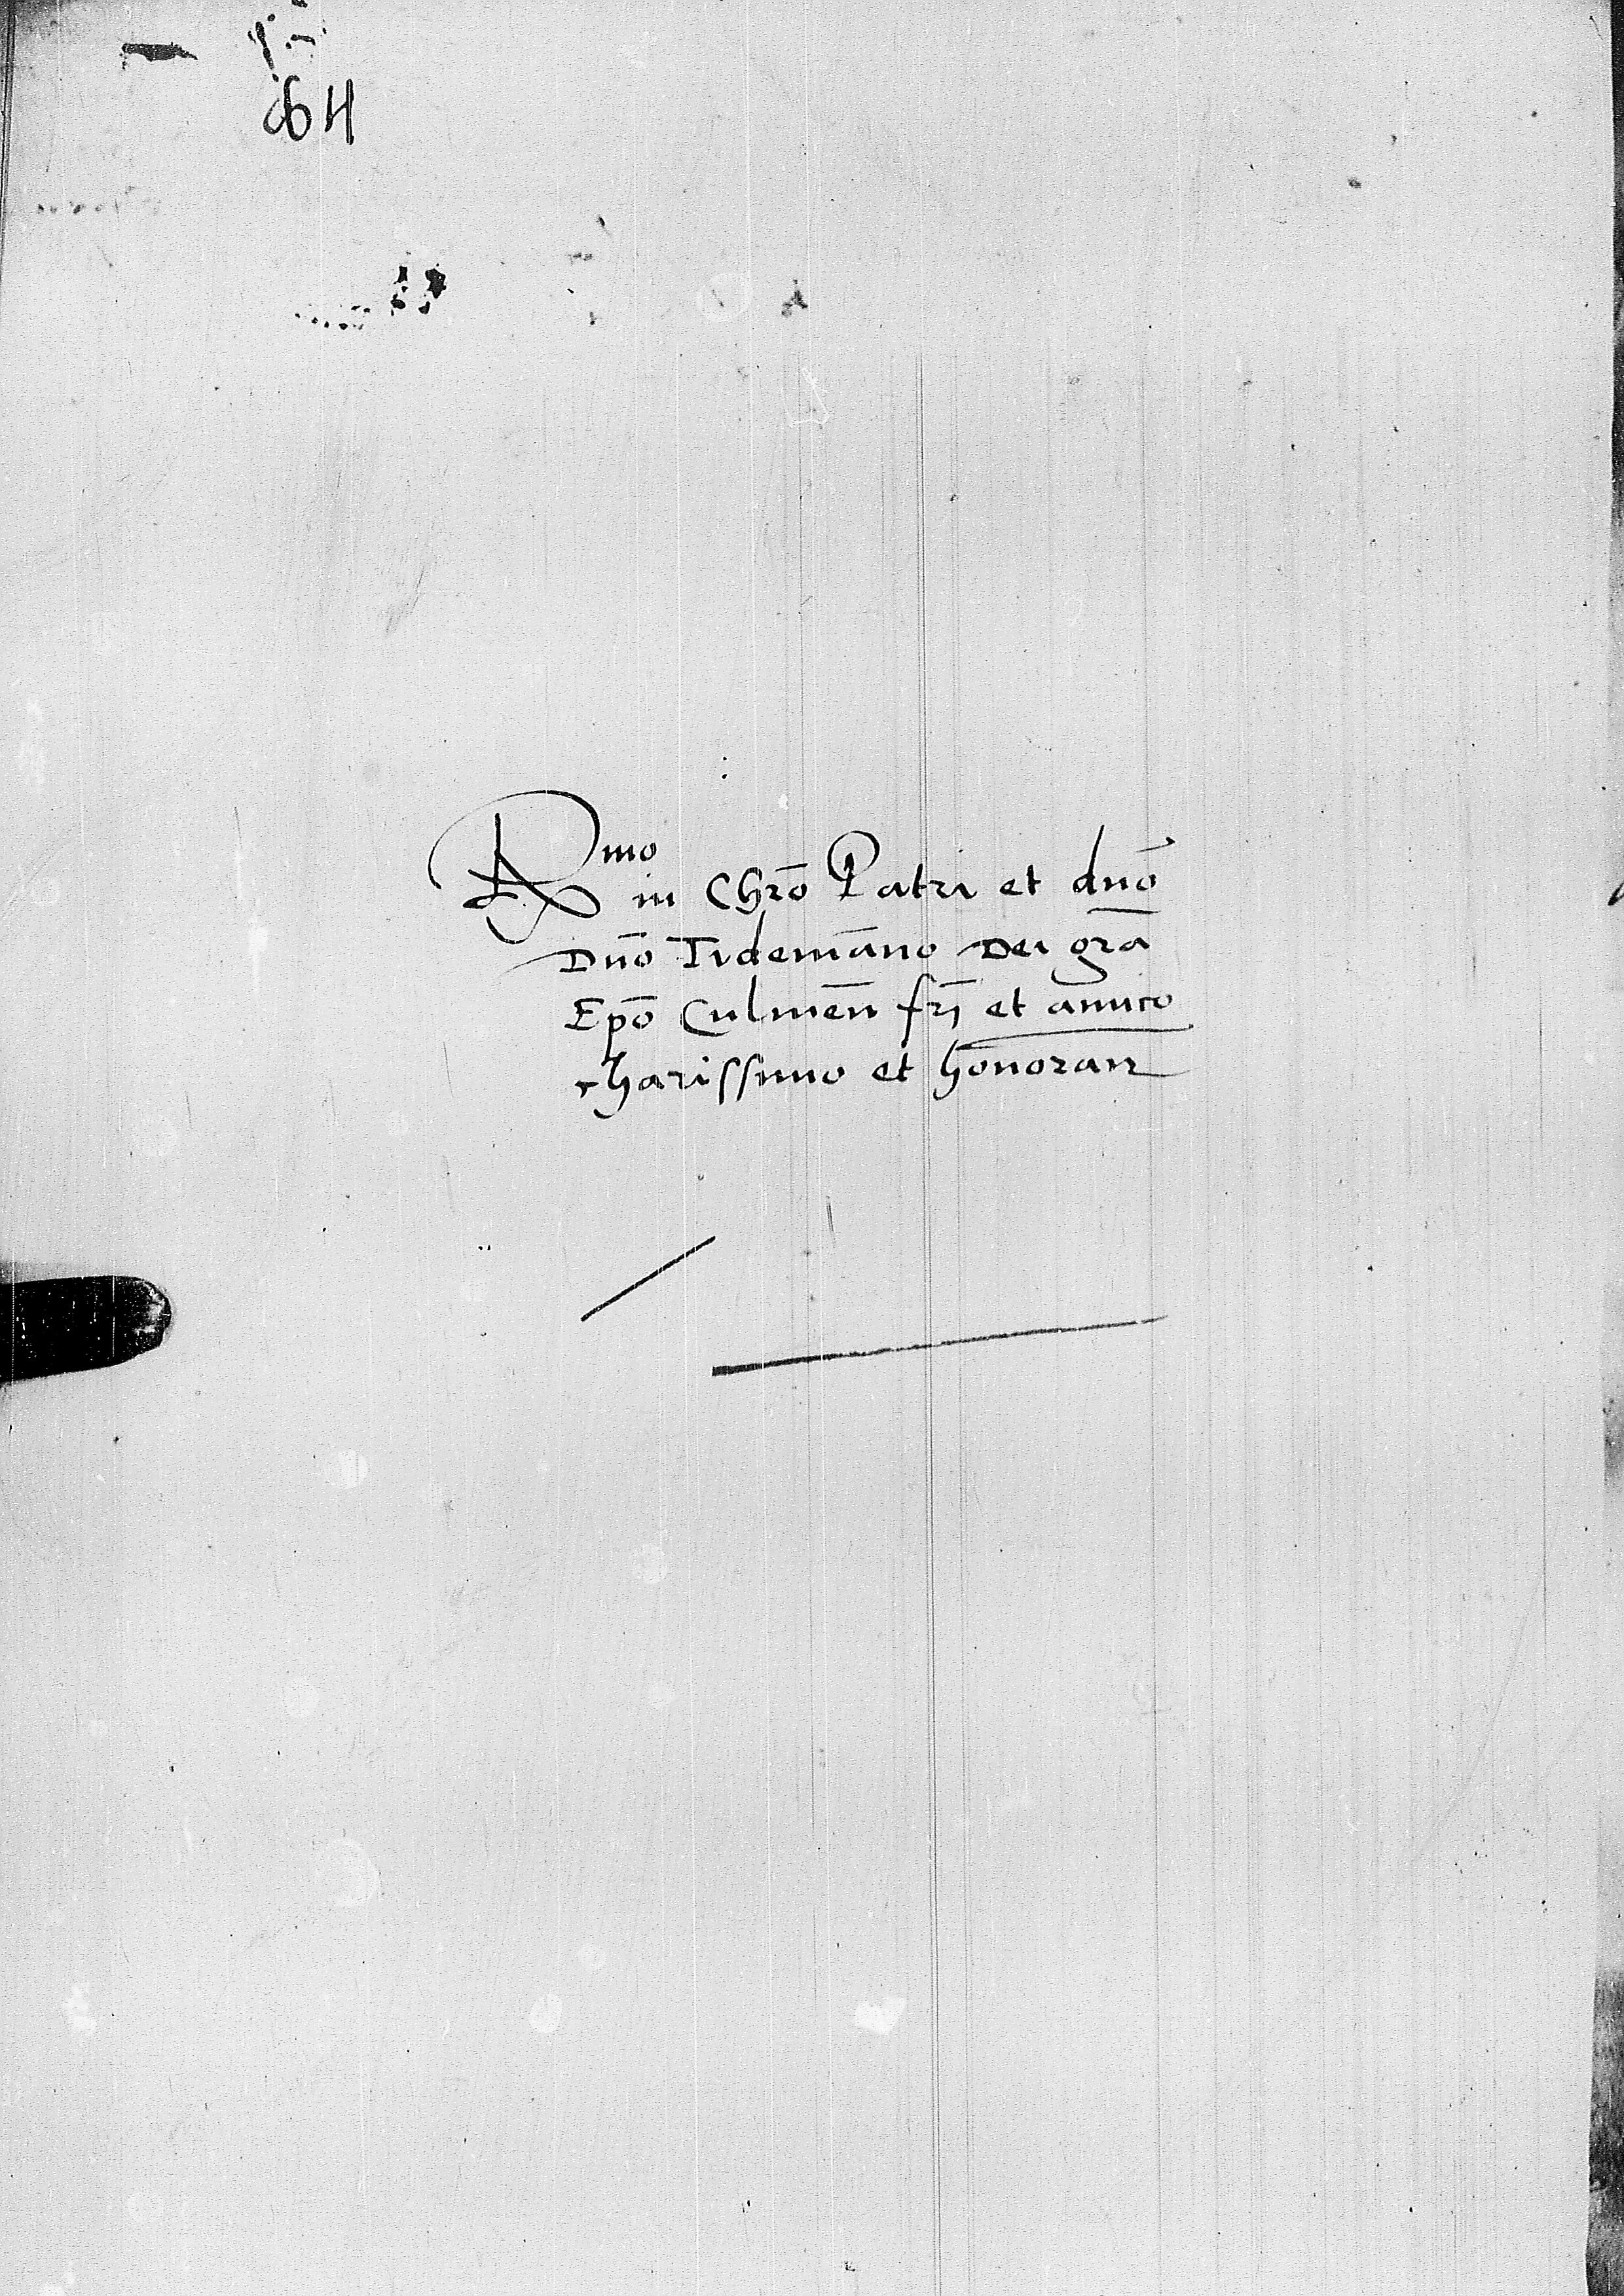 64
Rmo
in Chro̅ Patri et dno̅
Dn̅o Tidema̅no Dei gra̅
Ep̅o Culmen̅ fri̅ et amico
charissimo et honoran